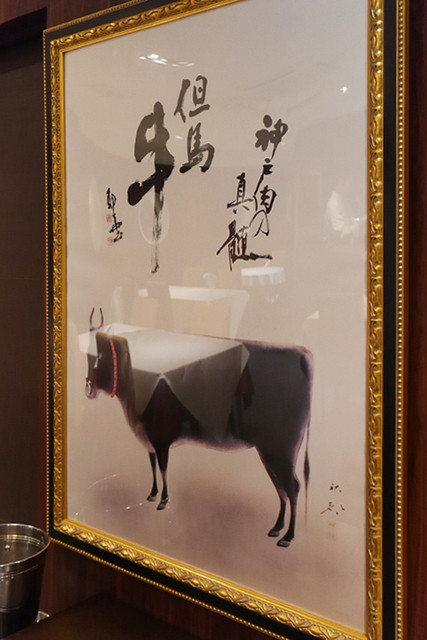 神戸肉の
真髄
但馬
牛